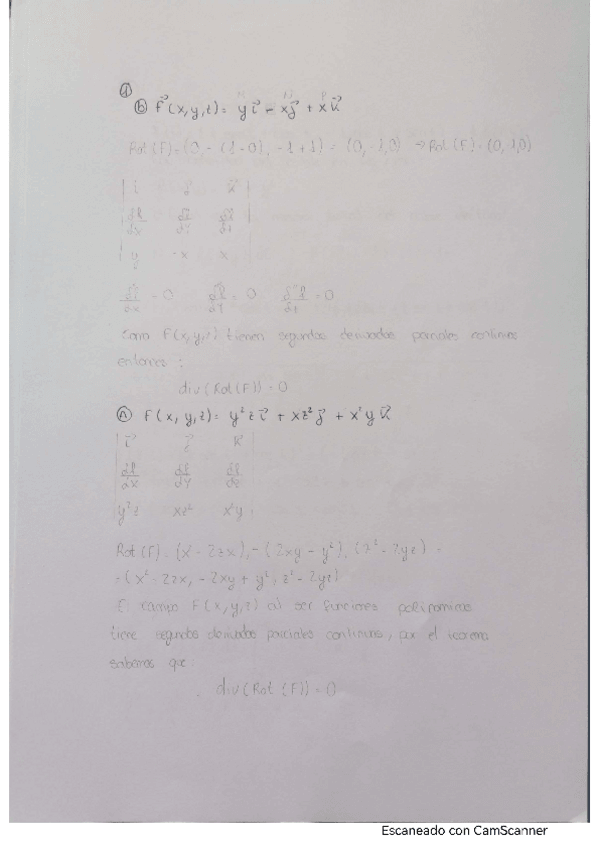 ①
ⓑ F⃗(x,y,z)= y i⃗ - x j⃗ + x k⃗
Rot(F)=(0 - (1-0), -1+1) = (0,-1,0) → Rot(F)=(0,-1,0)
| i j k |
| ∂f/∂x ∂f/∂y ∂f/∂z |
| y -x x |
= 0 = 0 = 0
Como F(x,y,z) tienen segundas derivadas parciales continuas
entonces :
div(Rot(F))=0
F(x,y,z)= y²z i⃗ + xz² j⃗ + x²y k⃗
| i⃗ j⃗ k⃗ |
| ∂f/∂x ∂f/∂y ∂f/∂z |
| y²z xz² x²y |
Rot(F)= (x² - 2zx), -(2xy - y²), (z² - 2yz) =
=(x² - 2zx, -2xy + y², z² - 2yz)
El campo F(x,y,z) al ser funciones polinomicas
tiene segundas derivadas parciales continuas, por el teorema
sabemos que:
div(Rot(F))=0
Escaneado con CamScanner